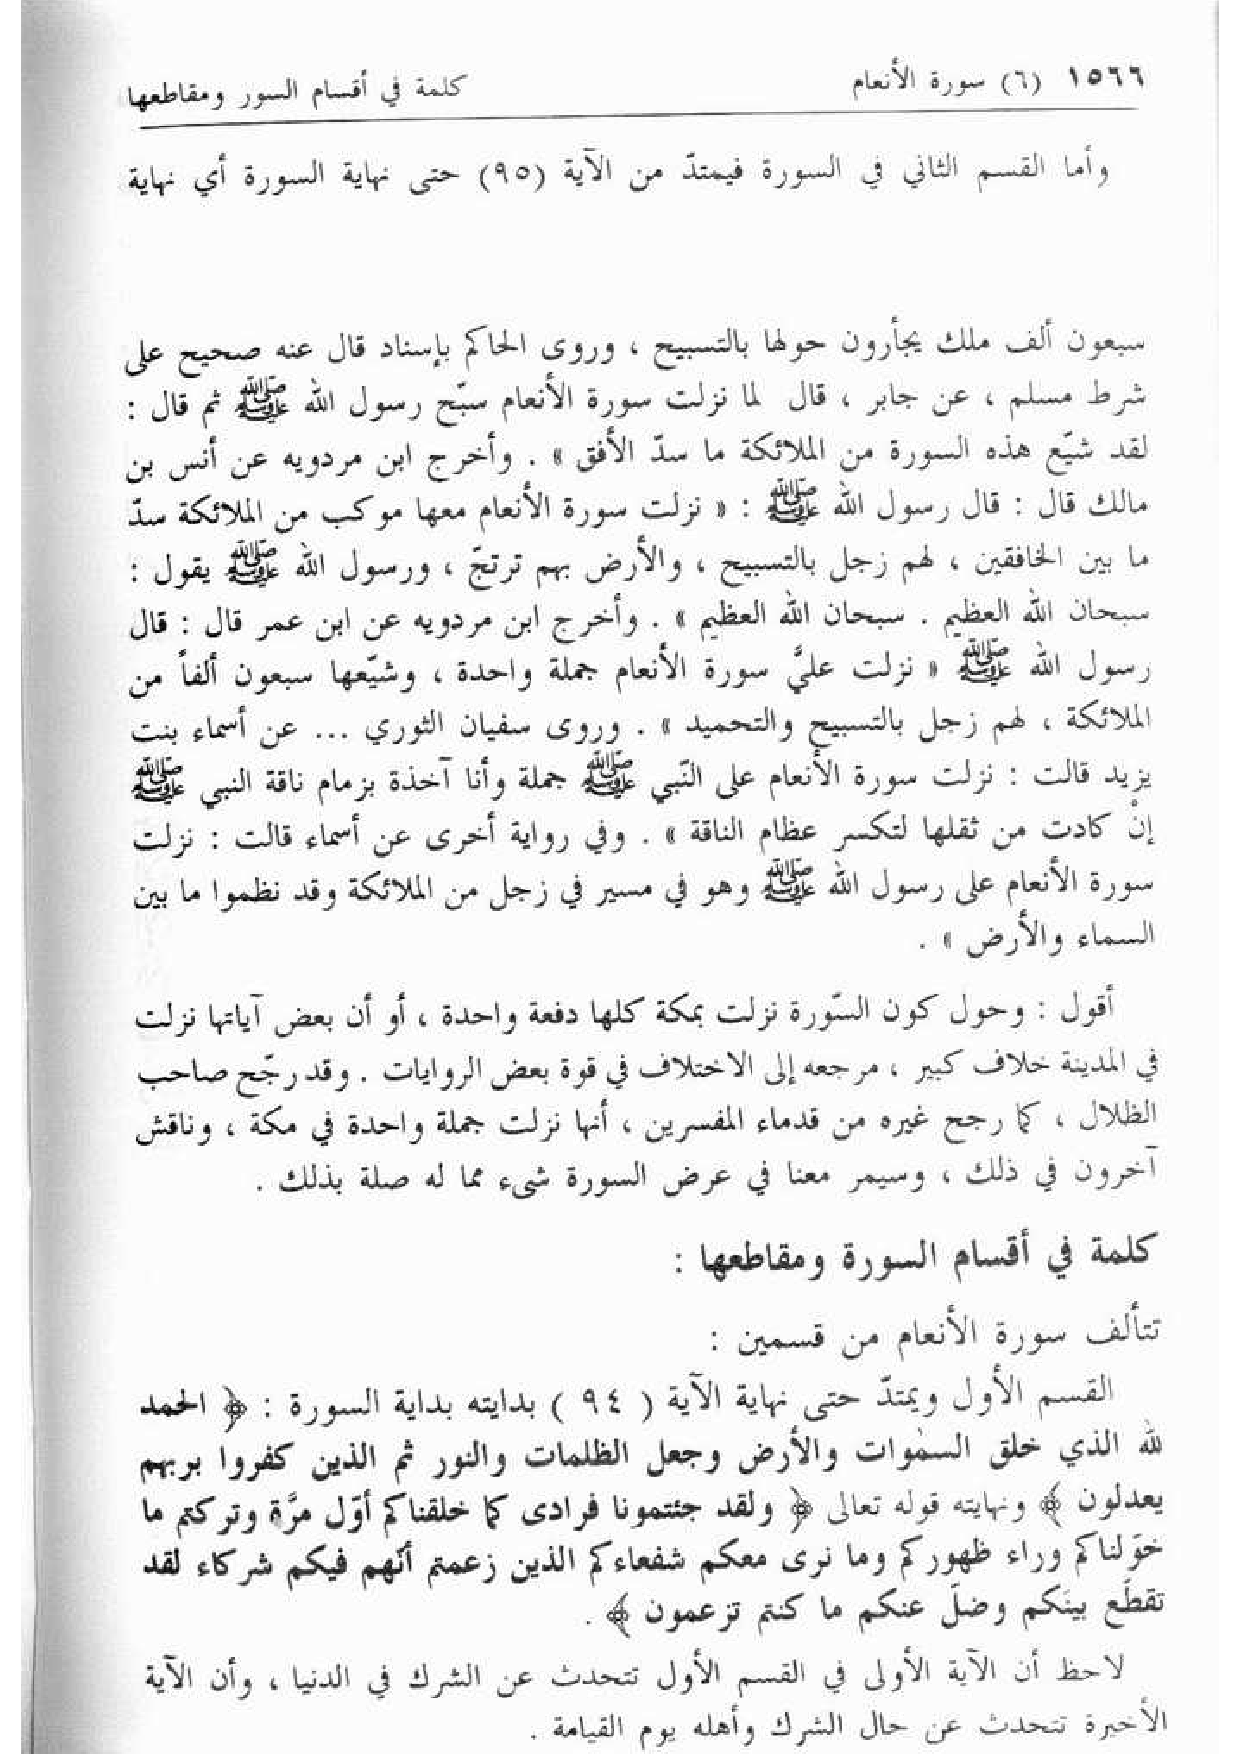 ١٥٦٦ (٦) سورة الأنعام كلمة في أقسام السور ومقاطعها
وأما القسم الثاني في السورة فيمتدّ من الآية (٩٥) حتى نهاية السورة أي نهاية
سبعون ألف ملك يجأرون حولها بالتسبيح ، وروى الحاكم بإسناد قال عنه صحيح على
شرط مسلم ، عن جابر ، قال لما نزلت سورة الأنعام سبّح رسول الله ﷺ ثم قال :
لقد شيّع هذه السورة من الملائكة ما سدّ الأفق » . وأخرج ابن مردويه عن أنس بن
مالك قال : قال رسول الله ﷺ : « نزلت سورة الأنعام معها موكب من الملائكة سدّ
ما بين الخافقين ، لهم زجل بالتسبيح ، والأرض بهم ترتجّ ، ورسول الله ﷺ يقول :
سبحان الله العظيم . سبحان الله العظيم » . وأخرج ابن مردويه عن ابن عمر قال : قال
رسول الله ﷺ « نزلت عليَّ سورة الأنعام جملة واحدة ، وشيّعها سبعون ألفاً من
الملائكة ، لهم زجل بالتسبيح والتحميد » . وروى سفيان الثوري ... عن أسماء بنت
يزيد قالت : نزلت سورة الأنعام على النّبي ﷺ جملة وأنا آخذة بزمام ناقة النبي ﷺ
إنْ كادت من ثقلها لتكسر عظام الناقة » . وفي رواية أخرى عن أسماء قالت : نزلت
سورة الأنعام على رسول الله ﷺ وهو في مسير في زجل من الملائكة وقد نظموا ما بين
السماء والأرض » .
أقول : وحول كون السّورة نزلت بمكة كلها دفعة واحدة ، أو أن بعض آياتها نزلت
في المدينة خلاف كبير ، مرجعه إلى الاختلاف في قوة بعض الروايات . وقد رجّح صاحب
الظلال ، كما رجح غيره من قدماء المفسرين ، أنها نزلت جملة واحدة في مكة ، وناقش
آخرون في ذلك ، وسيمر معنا في عرض السورة شيء مما له صلة بذلك .
كلمة في أقسام السورة ومقاطعها :
تتألف سورة الأنعام من قسمين :
القسم الأول ويمتدّ حتى نهاية الآية ( ٩٤ ) بدايته بداية السورة : ﴿ الحمد
لله الذي خلق السمٰوات والأرض وجعل الظلمات والنور ثم الذين كفروا بربهم
يعدلون ﴾ ونهايته قوله تعالى ﴿ ولقد جئتمونا فرادى كما خلقناكم أوّل مرَّة وتركتم ما
خوّلناكم وراء ظهوركم وما نرى معكم شفعاءكم الذين زعمتم أنّهم فيكم شركاء لقد
تقطّع بينَكم وضلّ عنكم ما كنتم تزعمون ﴾ .
لاحظ أن الآية الأولى في القسم الأول تتحدث عن الشرك في الدنيا ، وأن الآية
الأخيرة تتحدث عن حال الشرك وأهله يوم القيامة .